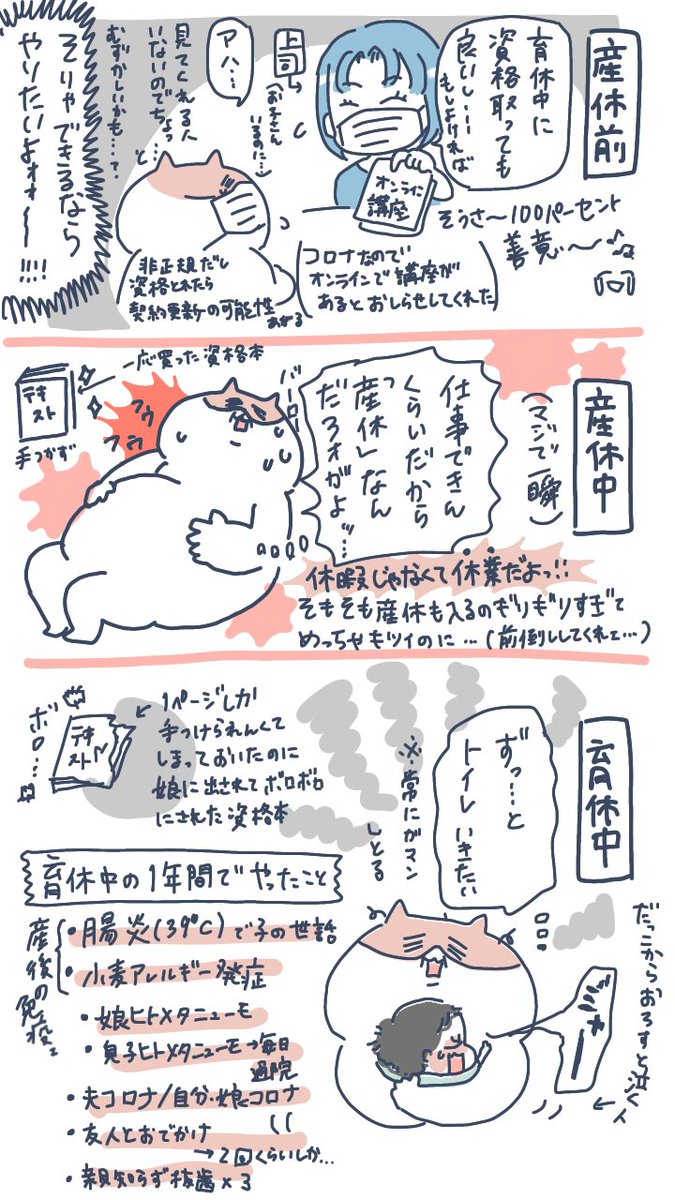 産休前
育休中に
資格取っても
良いし…
もしよければ
オンライン
講座
上司
(お子さん
いるのに…)
アハ…
見てくれる人
いないのでちょっと…
むずかしいかも…?
そりゃできるなら
やりたいよォォ〜!!!!
そうさ〜100パーセント
善意〜♪
コロナなので
オンラインで講座が
あるとおしらせしてくれた
非正規だし
資格とれたら
契約更新の可能性
あがる
産休中
(マジで一瞬)
仕事できん
くらいだから
"産休"なん
だろォがよッ…
バーロー
フウ
フウ
一応買った資格本
テキスト
手つかず
休暇じゃなくて休業だよっ!!
そもそも産休も入るのギリギリすぎて
めっちゃキツイのに…(前倒ししてくれェ…)
育休中
ずっ…と
トイレいきたい
※常にガマン
しとる
1ページしか
手つけられんくて
しまっておいたのに
娘に出されてボロボロ
にされた資格本
テキスト
ボロ…
だっこからおろすと泣く人
育休中の1年間でやったこと
産後の免疫…
・腸炎(39℃)で子の世話
・小麦アレルギー発症
・娘ヒトメタニューモ
・息子ヒトメタニューモ→毎日
通院
・夫コロナ/自分・娘コロナ
・友人とおでかけ
→2回くらいしか…
・親知らず抜歯×3